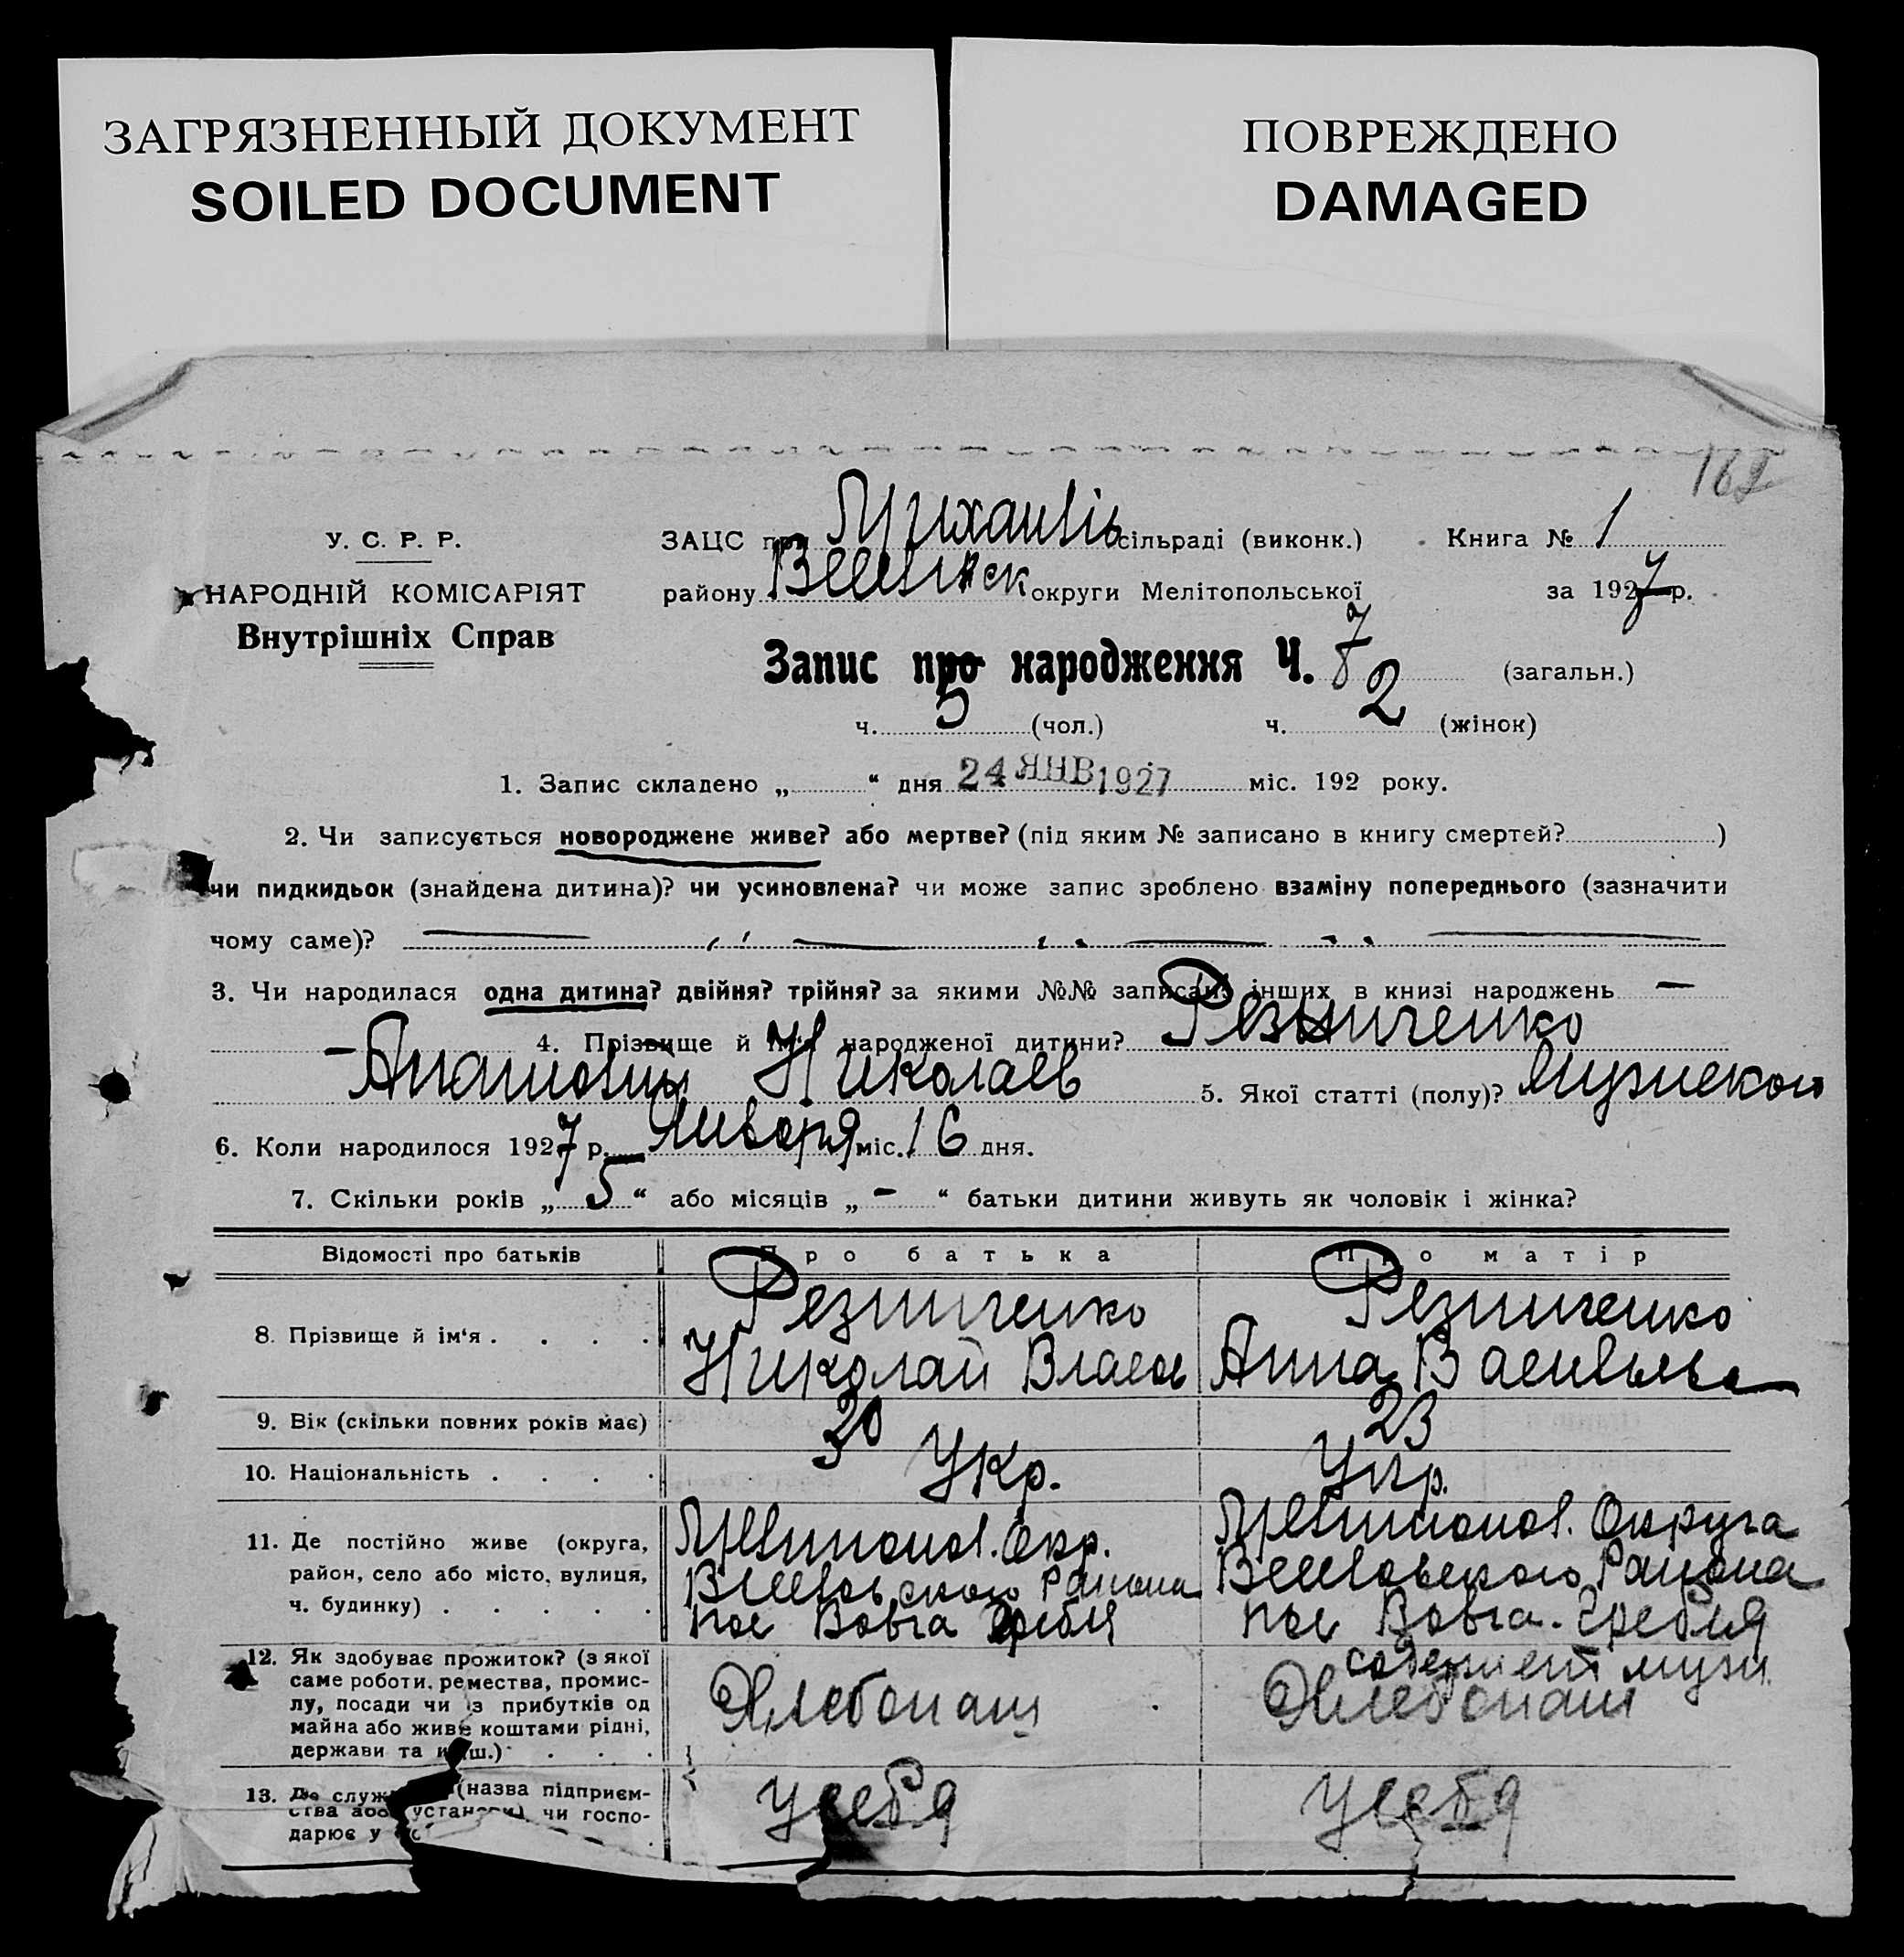 ЗАГРЯЗНЕННЫЙ ДОКУМЕНТ
SOILED DOCUMENT
ПОВРЕЖДЕНО
DAMAGED
У. С. Р. Р.
НАРОДНІЙ КОМІСАРІЯТ
Внутрішніх Справ
ЗАЦС при сільраді (виконк.) Книга № 1
району округи Мелітопольської за 1927 р.
Запис про народження Ч. 7 (загальн.)
ч. 5 (чол.) ч. 2 (жінок)
1. Запис складено „ “ дня 24 ЯНВ 1927 міс. 192 року.
2. Чи записується новороджене живе? або мертве? (під яким № записано в книгу смертей? )
чи пидкидьок (знайдена дитина)? чи усиновлена? чи може запис зроблено взаміну попереднього (зазначити
чому саме)?
3. Чи народилася одна дитина? двійня? трійня? за якими №№ записано інших в книзі народжень —
4. Прізвище й ім'я народженої дитини? Резниченко
Анатолий Николаев 5. Якої статті (полу)? Мужской
6. Коли народилося 1927 р. Января міс. 16 дня.
7. Скільки років „ 5 “ або місяців „ – “ батьки дитини живуть як чоловік і жінка?
Відомості про батьків Про батька Про матір
8. Прізвище й ім'я . . . . Резниченко Резниченко
Николай Власов Анна Васильев
9. Вік (скільки повних років має) 30 23
10. Національність . . . . Укр. Укр.
11. Де постійно живе (округа, Мелитопол. Окр. Мелитопол. Округа
район, село або місто, вулиця, Района Района
ч. будинку) . . . . . пос Вовча Гребля пос Вовча. Гребля
12. Як здобуває прожиток? (з якої содержет муж
саме роботи, ремества, промис-
лу, посади чи із прибутків од Хлебопаш Хлебопаш
майна або живе коштами рідні,
держави та инш.) . . .
13. Де служ (назва підприєм- у себя у себя
ства або установи) чи госпо-
дарює у